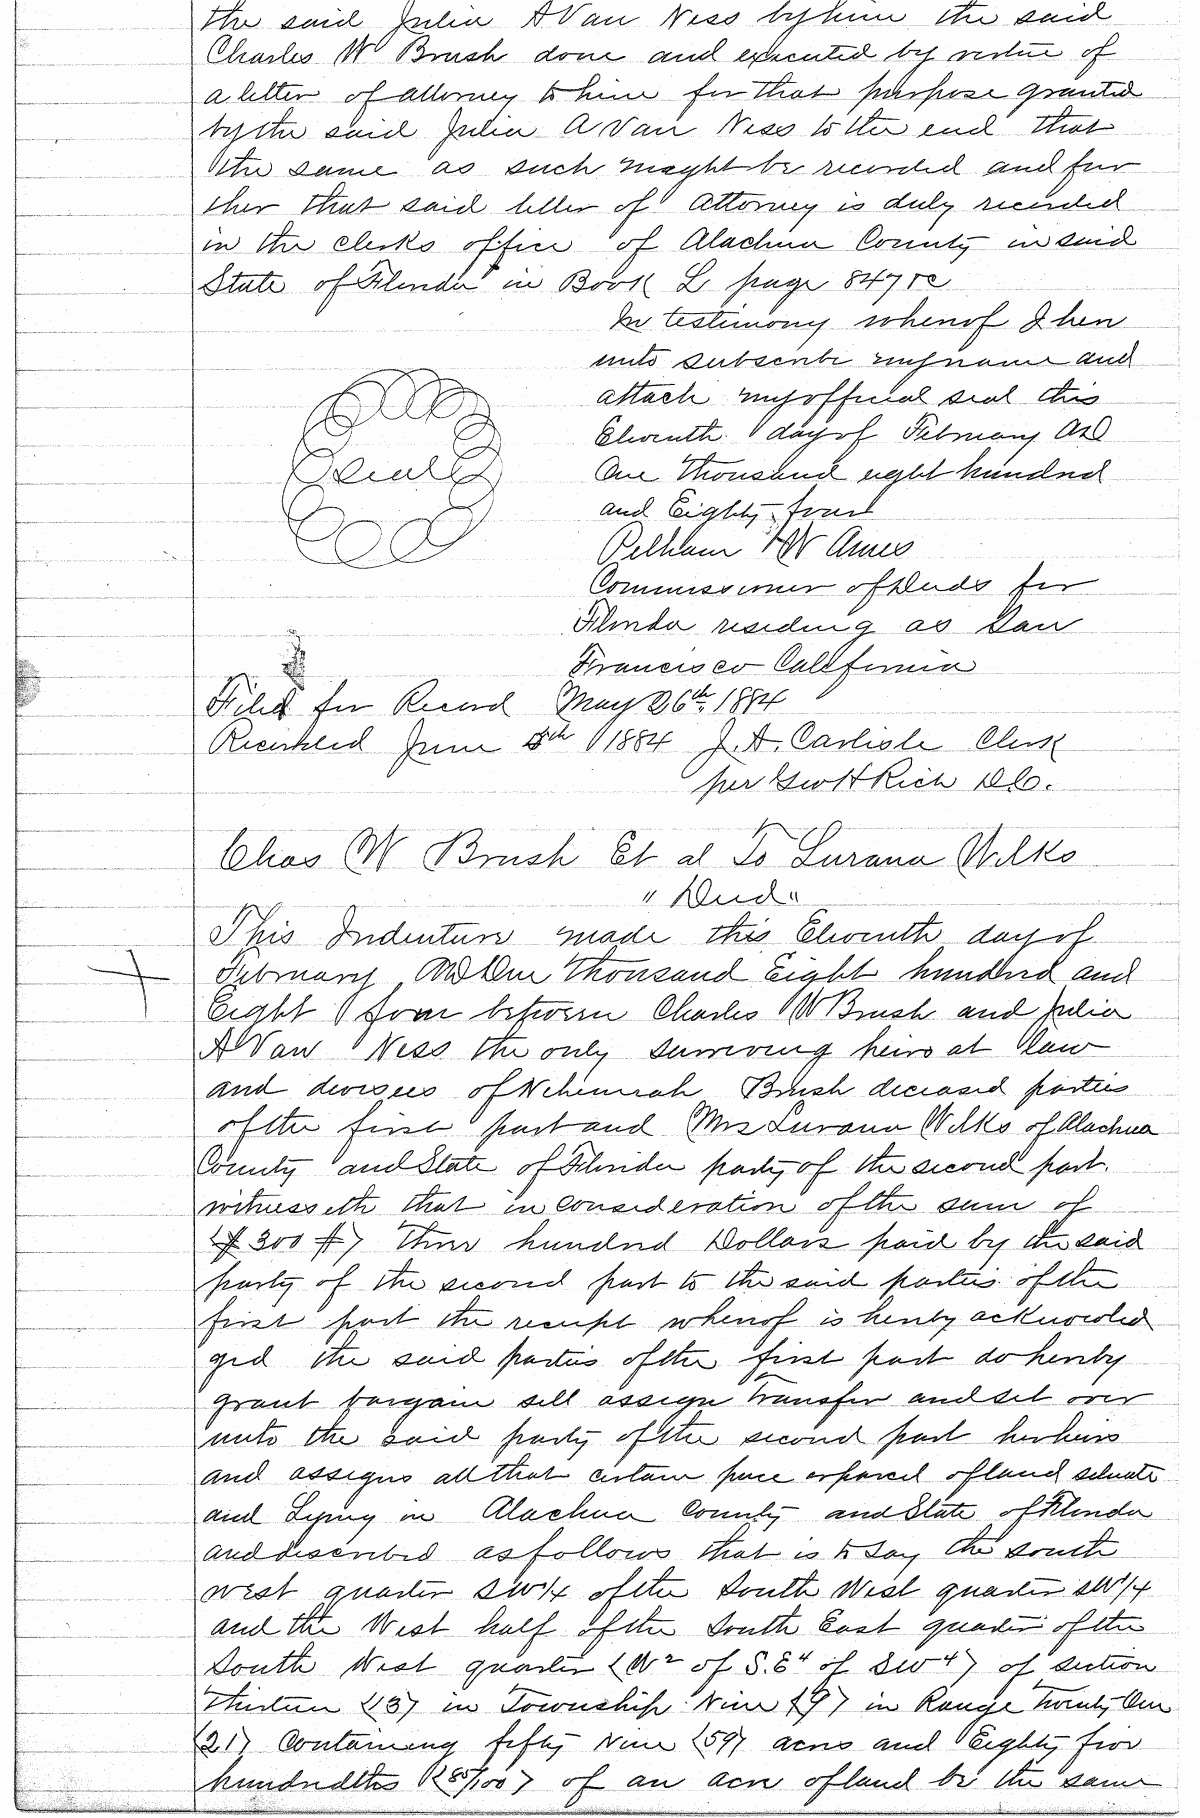 the said Julia A Van Ness by him the said
Charles W Brush done and executed by virtue of
a letter of attorney to him for that purpose granted
by the said Julia A Van Ness to the end that
the same as such might be recorded and fur
ther that said letter of Attorney is duly recorded
in the clerks office of Alachua County in said
State of Florida in Book L page 847 &c
In testimony whereof I here
unto subscribe my name and
attach my official seal this
Eleventh day of February AD
One thousand eight hundred
and Eighty four
Seal
Pelham W Ames
Commissioner of Deeds for
Florida residing as San
Francisco California
Filed for Record May 26th 1884
Recorded June 5th 1884 J. A. Carlisle Clerk
per Geo H Rich D.C.
Chas W Brush Et al To Lurana Wilks
"Deed"
This Indenture made this Eleventh day of
February AD One thousand Eight hundred and
Eight four between Charles W Brush and Julia
A Van Ness the only surviving heirs at law
and devisees of Nehemiah Brush deceased parties
of the first part and Mrs Lurana Wilks of Alachua
County and State of Florida party of the second part.
witnesseth that in consideration of the sum of
($ 300 $) Three hundred Dollars paid by the said
party of the second part to the said parties of the
first part the receipt whereof is hereby acknowled
ged the said parties of the first part do hereby
grant bargain sell assign transfer and set over
unto the said party of the second part her heirs
and assigns all that certain piece or parcel of land situate
and Lying in Alachua County and State of Florida
and described as follows that is to say the south
west quarter SW1/4 of the South West quarter SW1/4
and the West half of the South East quarter of the
South West quarter (W2 of S.E4 of SW4) of section
Thirteen (13) in Township Nine (9) in Range Twenty One
(21) Containing fifty Nine (59) acres and Eighty five
hundredths (85/100) of an acre of land be the same